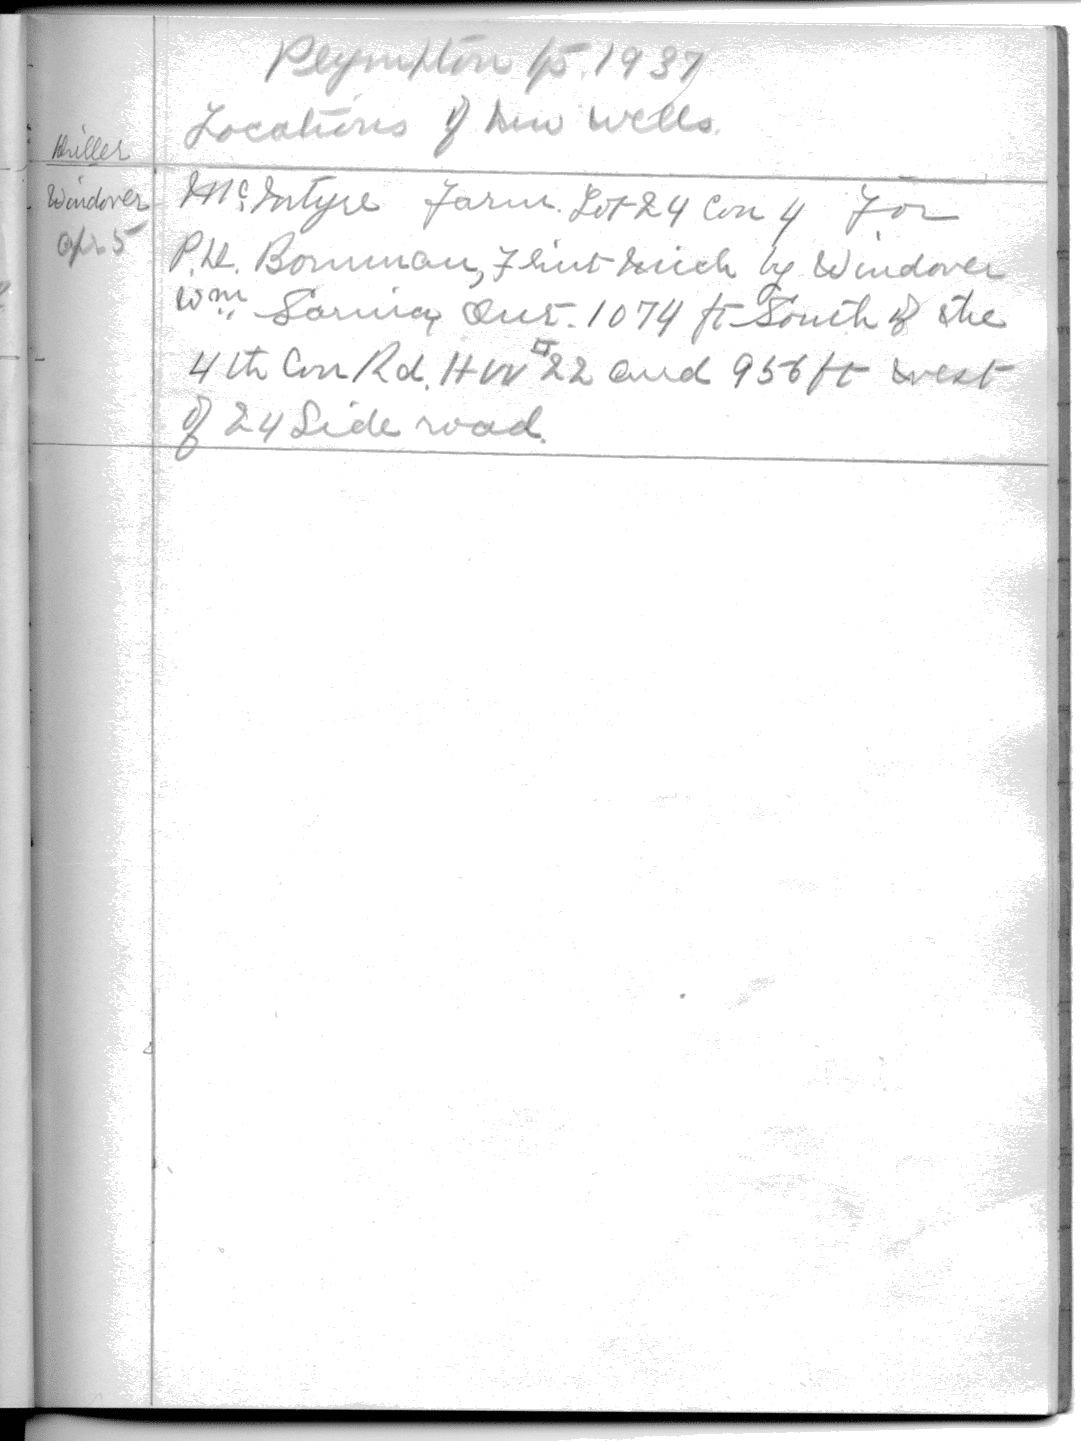 Plympton tp. 1937
Locations of New Wells.
Driller
Windover
Apr 5
McIntyre Farm. Lot 24 Con 4 For
P.H. Bowman, Flint Mich by Windover
Wm Sarnia, Ont. 1074 ft South of the
4th Con Rd. HW 22 and 956 ft west
of 24 Side road.